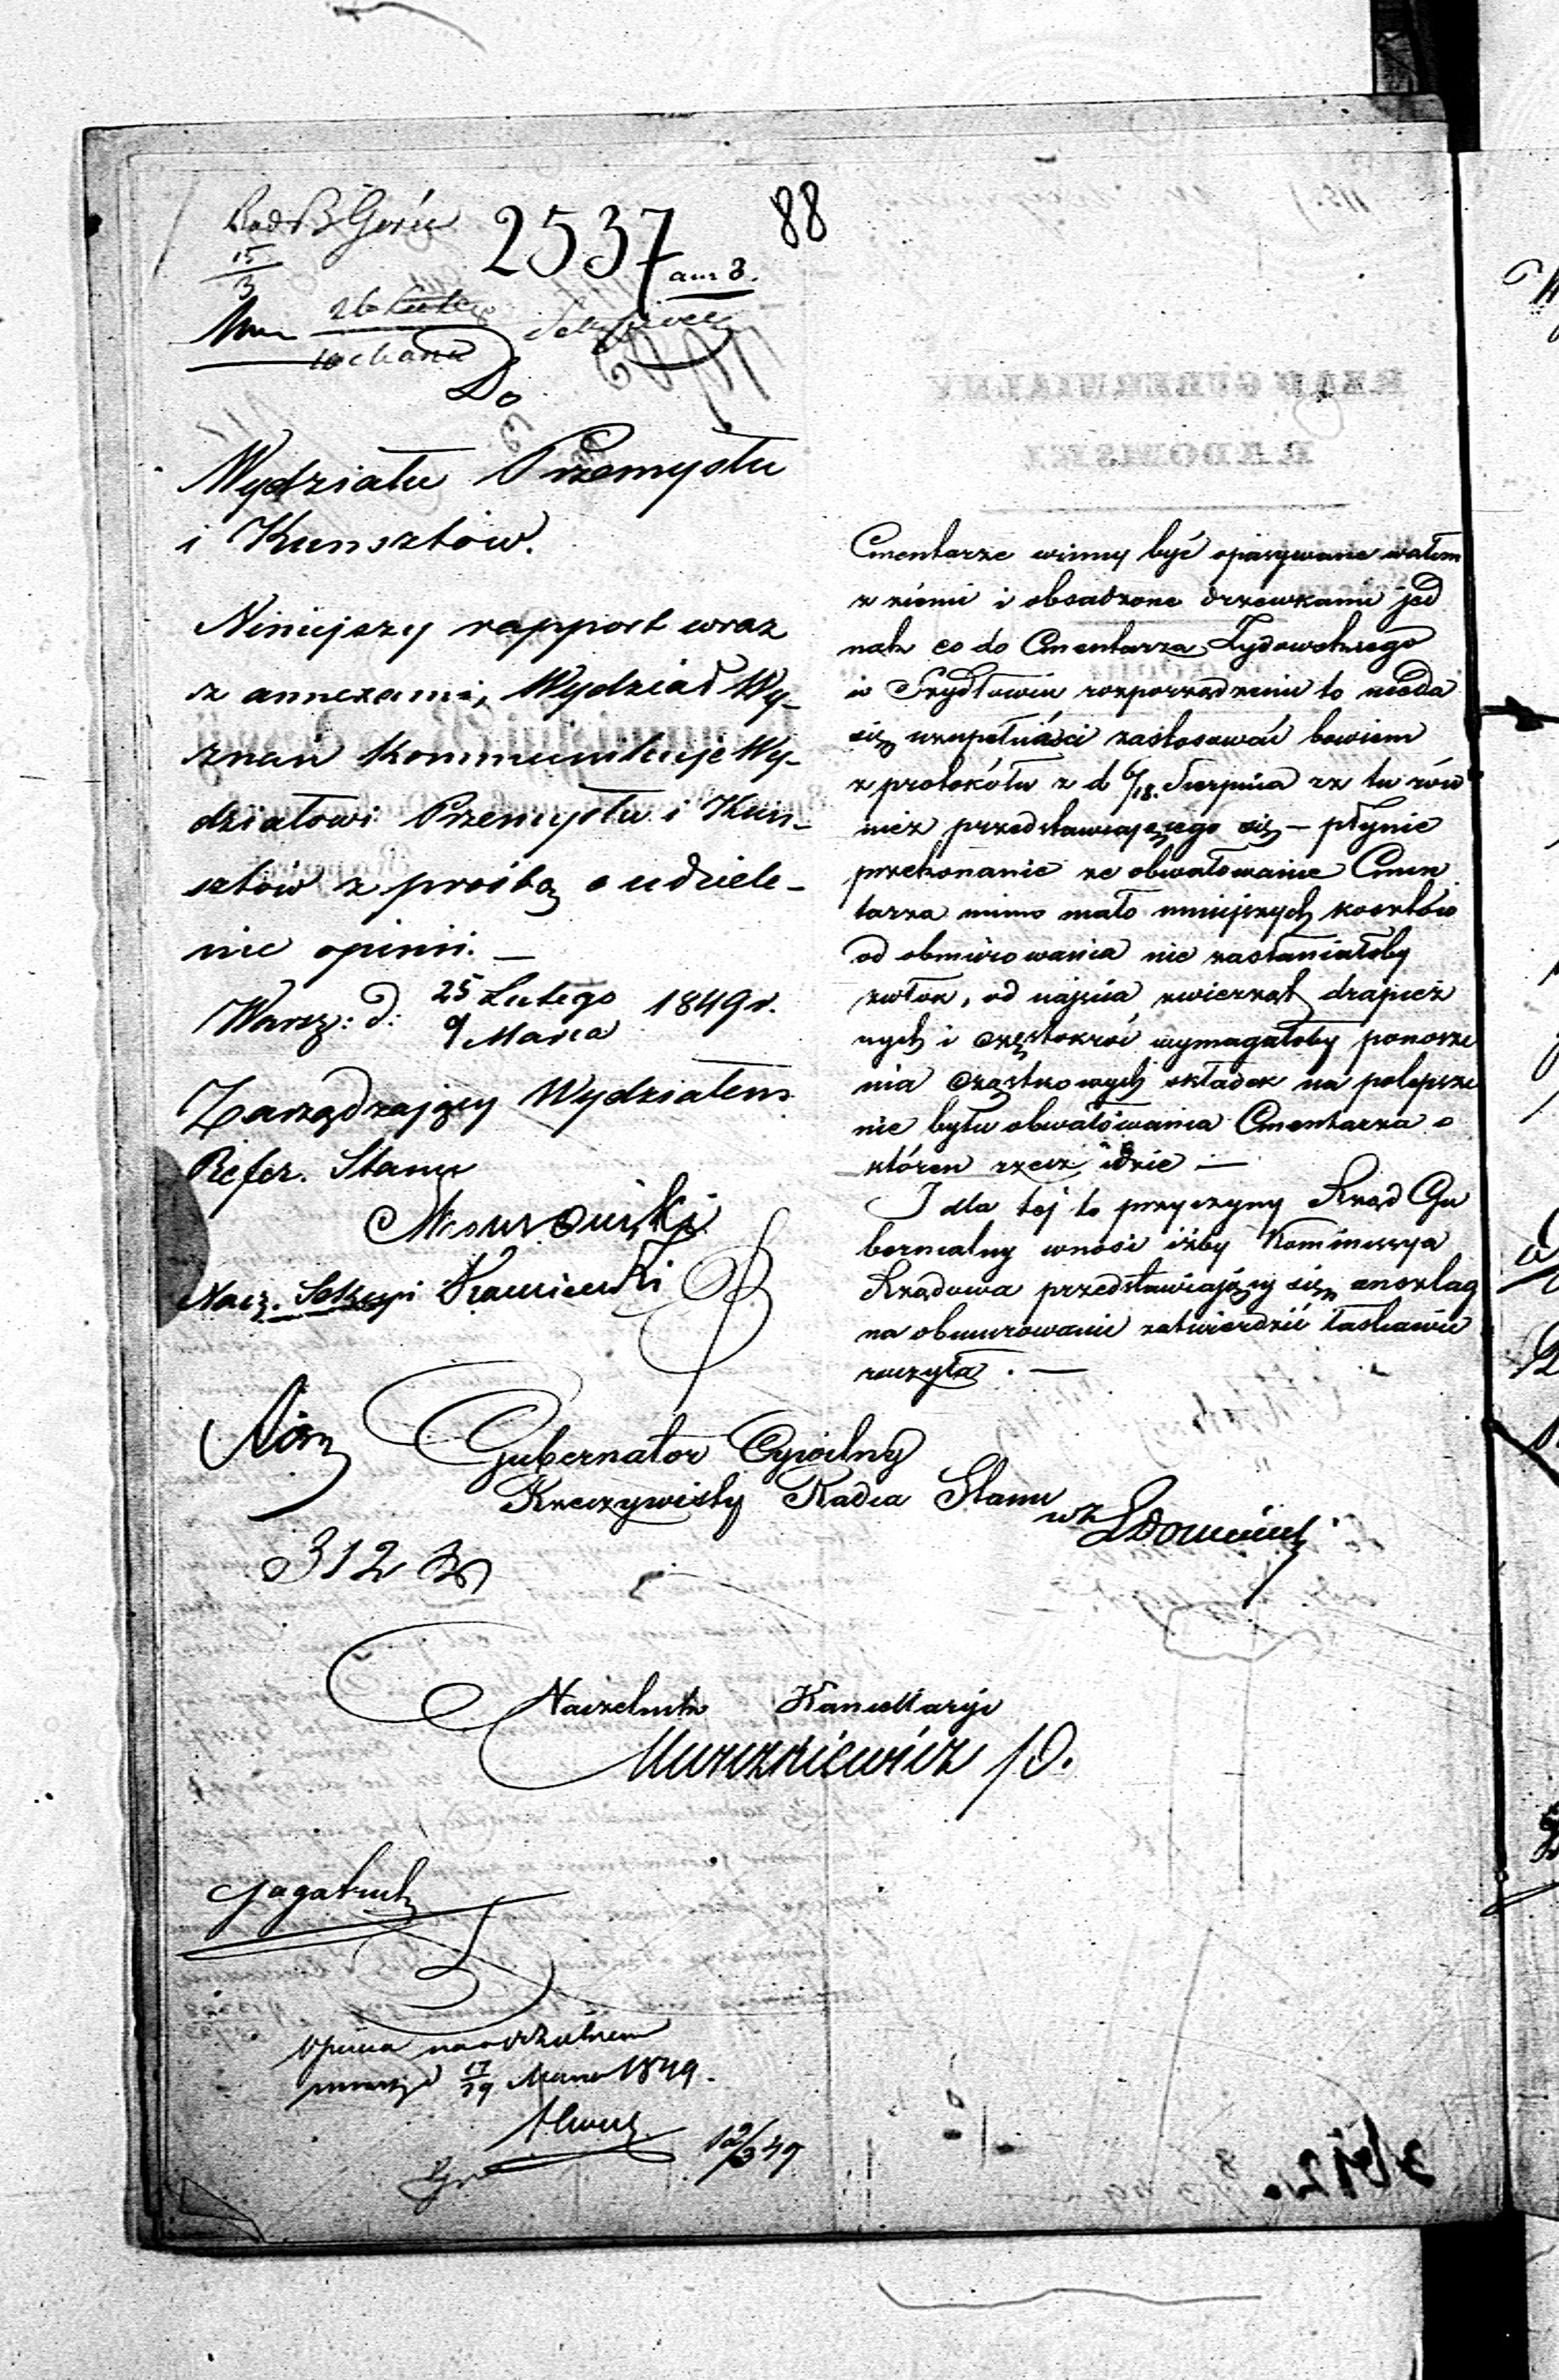 88
2537
15
3
Do
Wydziału Przemysłu
i Kunsztów.
Niniejszy rapport wraz
z annexami, Wydział Wy-
znań kommunikuje Wy-
działowi Przemysłu i Kun-
sztów z prośbą o udziele-
nie opinii. —
Warsz: d: 25 Lutego 1849 r.
9 Marca
Zarządzający Wydziałem
Refer. Stanu
Nacz. Sekcyi
Cmentarze winny być opasywane wałem
z ziemi i obsadzone drzewkami jed
nak co do Cmentarza Żydowskiego
w Szydłowcu rozporządzenie to nieda
się zupełności zastosować bowiem
z protokółu z d 6/18. Sierpnia rz tu rów
nież przedstawiającego się — płynie
przekonanie że obwałowanie Cmen
tarza mimo mało mniejszych kosztów
od obmurowania nie zasłaniałoby
zwłok, od najścia zwierząt drapież
nych i częstokroć wymagałoby ponosze
nia cząstkowych składek na polepsze
nie bytu obwałowania Cmentarza o
którem rzecz idzie —
I dla tej to przyczyny Rząd Gu
bernialny wnosi iżby Kommissya
Rządowa przedstawiający się anszlag
na obmurowanie zatwierdzić łaskawie
raczyła. —
Gubernator Cywilny
Rzeczywisty Radca Stanu
wz
312
Naczelnik Kancellaryi
Opinia na oddzielnem
17/29 Marca 1849.
12/3 49